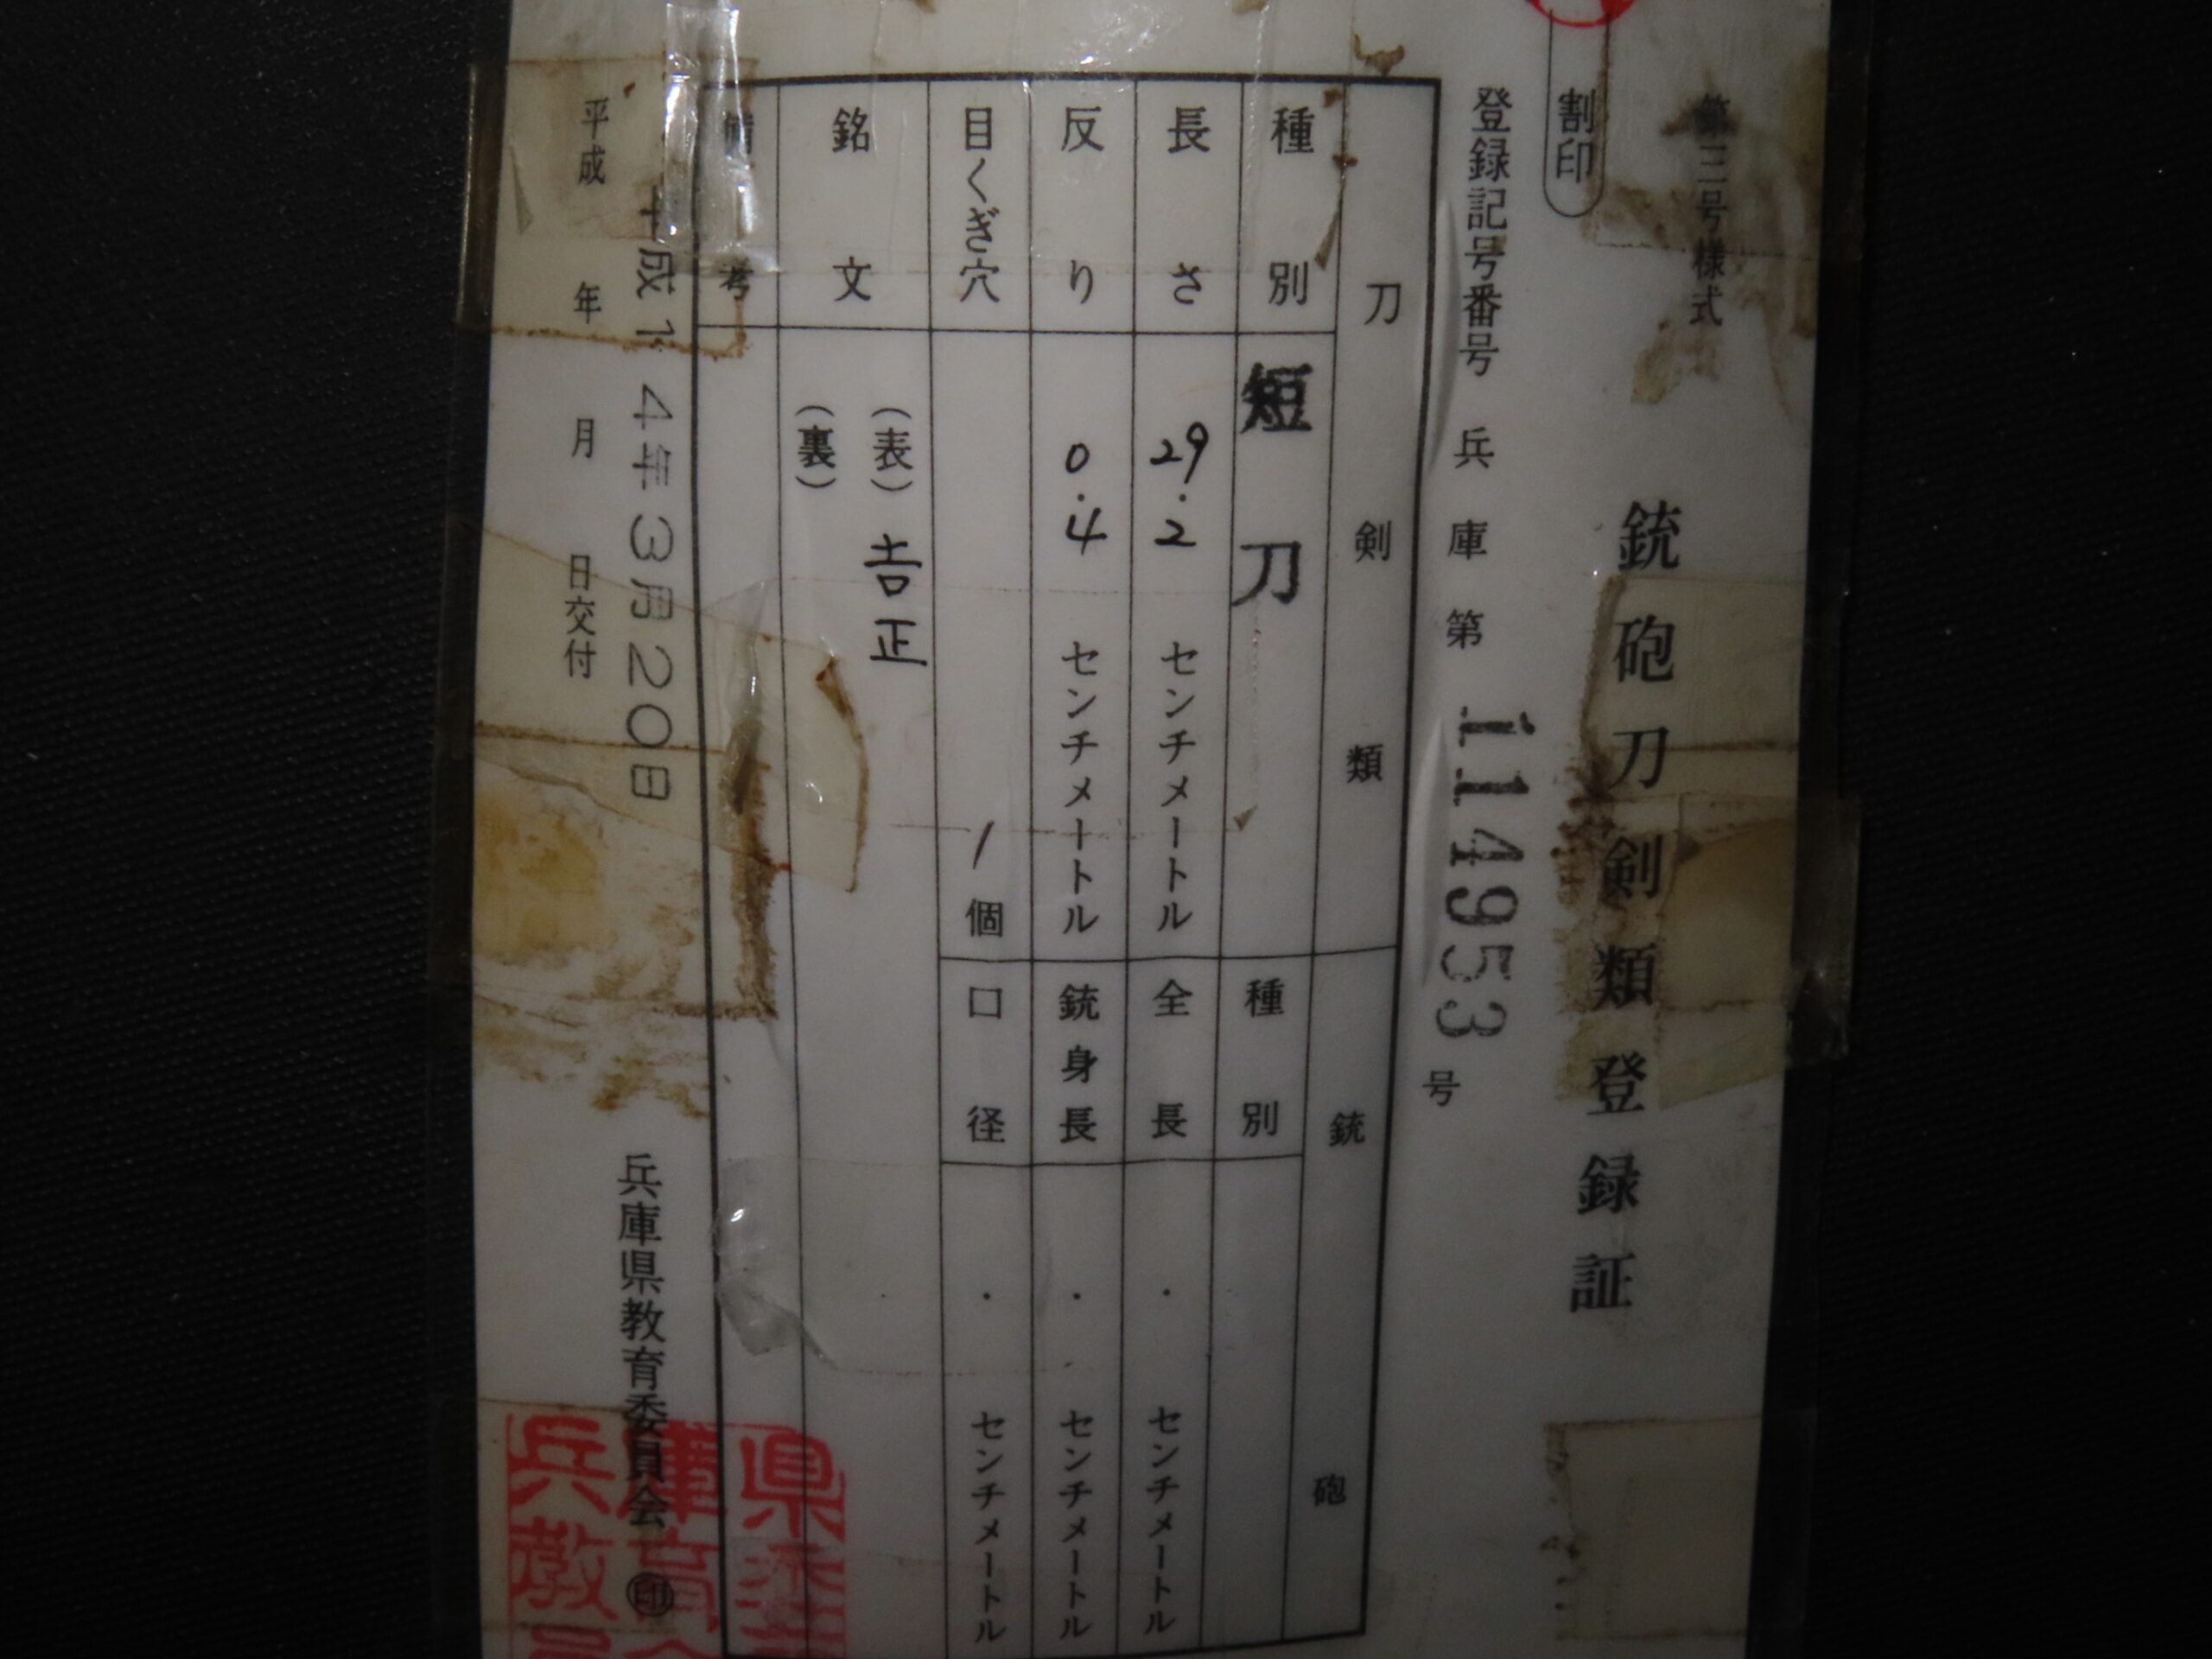 第三号様式
銃砲刀剣類登録証
割印
登録記号番号 兵庫第 114953 号
刀剣類
種別 短刀
長さ 29.2 センチメートル
反り 0.4 センチメートル
目くぎ穴 1個
銘文 (表) 吉正
(裏)
備考
銃砲
種別
全長 ・ センチメートル
銃身長 ・ センチメートル
口径 ・ センチメートル
平成14年3月20日
平成 年 月 日交付
兵庫県教育委員会 ㊞